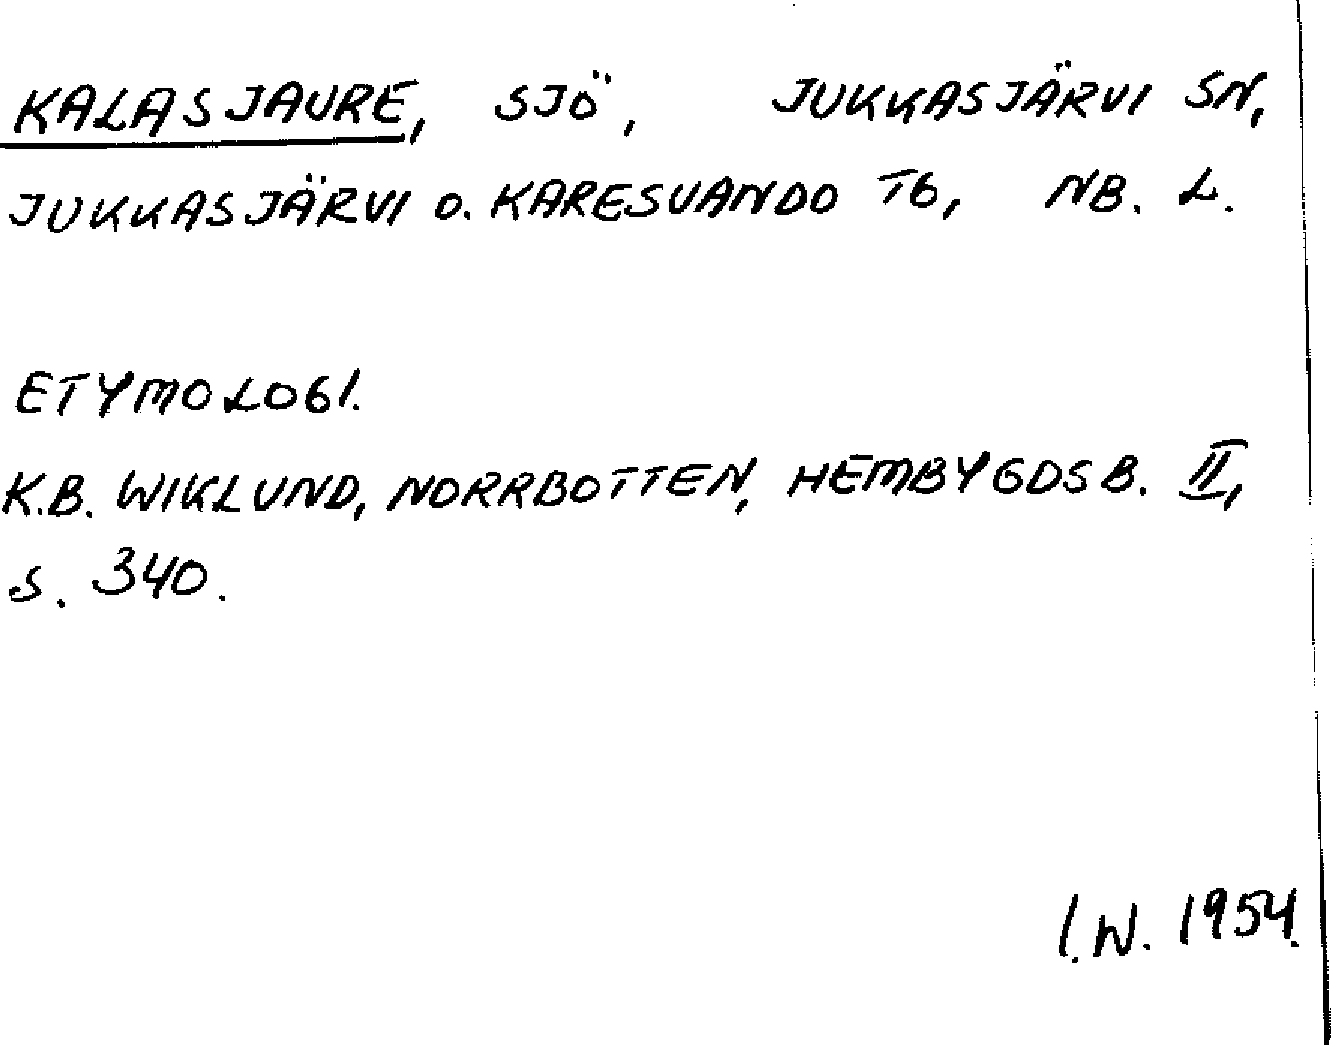 KALASJAURE, SJÖ, JUKKASJÄRVI SN,
JUKKASJÄRVI O. KARESUANDO TG, NB. L.
ETYMOLOGI.
K.B. WIKLUND, NORRBOTTEN, HEMBYGDSB. II,
S. 340.
I.W. 1954.